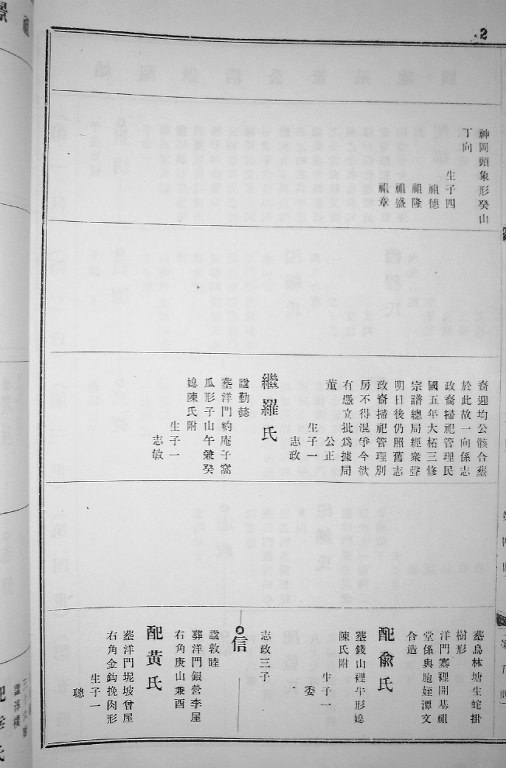 2
神岡頭象形癸山
丁向
生子四
祖德
祖隆
祖盛
祖章
裔迎均公骸合墓
於此故一向係志
政裔掃祀管理民
國五年大柘三修
宗譜總局經衆聲
明日後仍照舊志
政裔掃祀管理別
房不得混爭今欲
有憑立批爲據局
董
公正
生子一
志政
繼羅氏
諡勤懿
墓洋門豹庵子窩
瓜形子山午兼癸
媳陳氏附
生子一
志敏
墓烏林塘生蛇掛
樹形
洋門寨裡開基祖
堂係與胞姪潭文
合造
配兪氏
墓錢山裡牛形媳
陳氏附
生子一
委
志政三子
信
諡敦睦
葬洋門鍜營李屋
右角庚山兼酉
配黃氏
墓洋門坭坡曾屋
右角金鈎挽肉形
生子一
聰